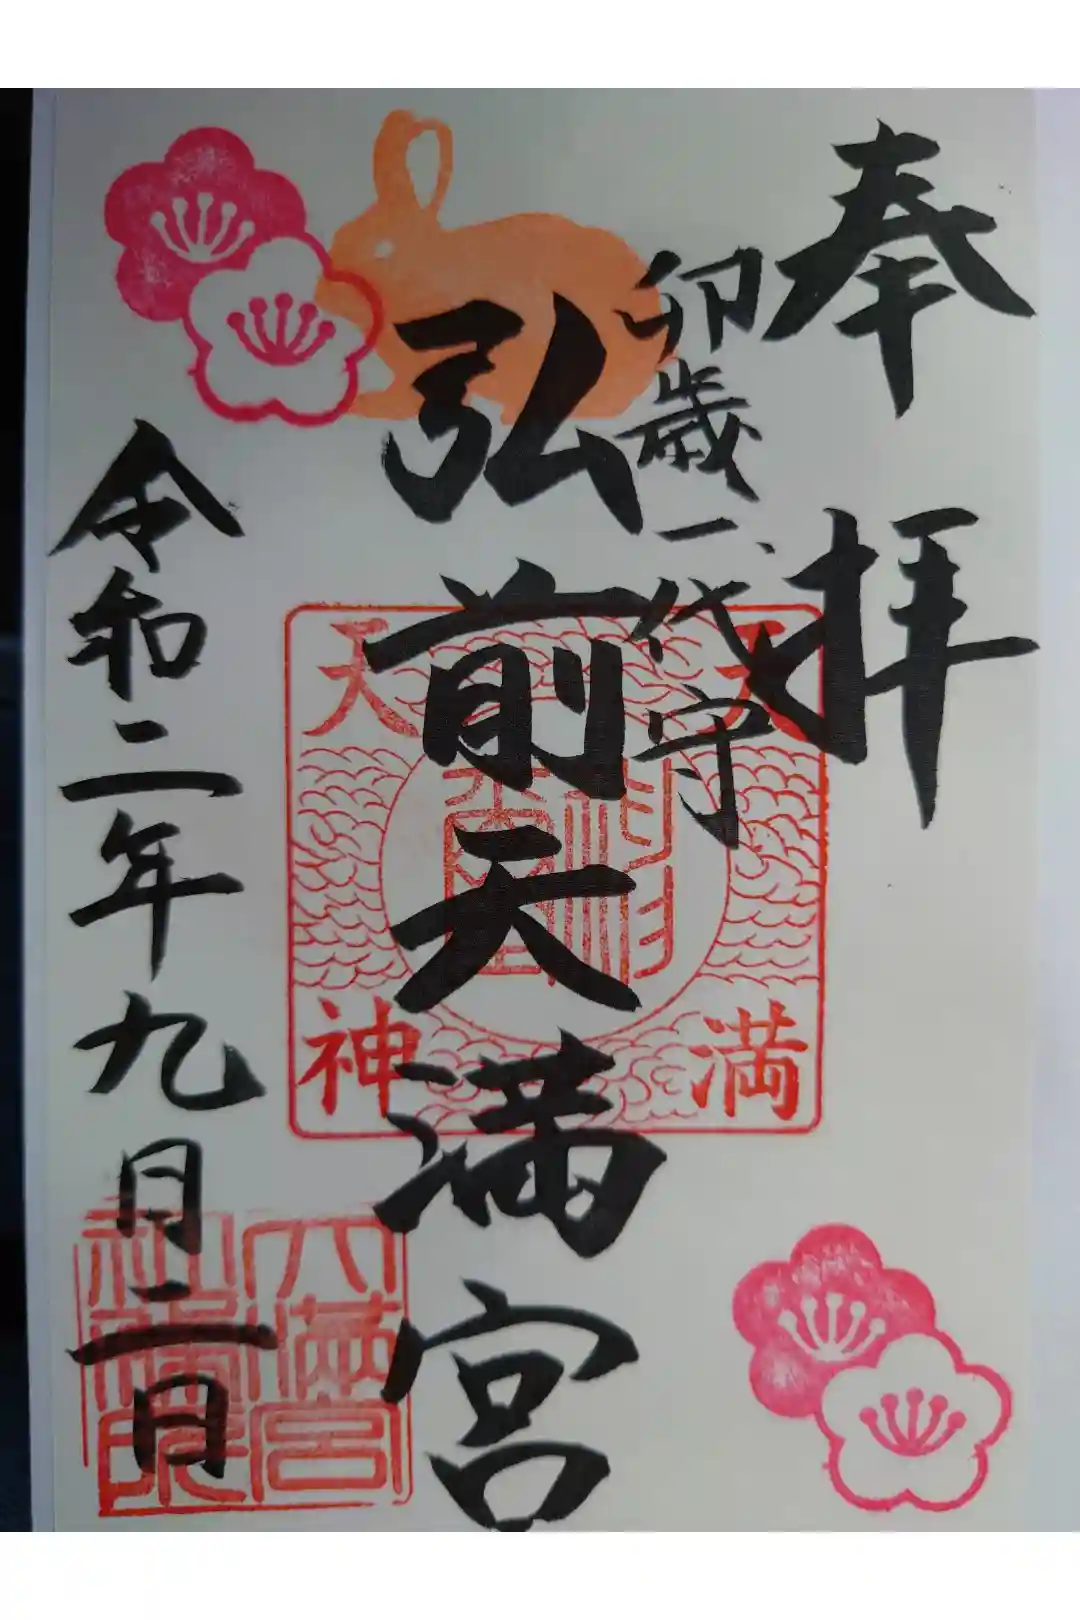 奉拝
卯歳一代守
弘前天満宮
令和二年九月二日
天満
天神
天満宮